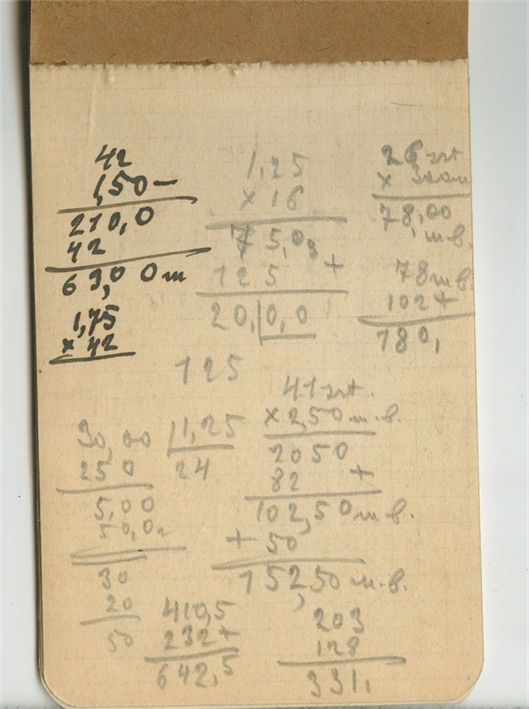 42
1,50 –
210,0
42
63,00 m
1,75
× 42
1,25
× 16
75,0
125 +
20,0,0
26
× 300
78,00
m.в.
78 m в.
102 +
180,
125
30,00 1,25
250 24
5,00
50,0
30
20
50
41
× 2,50 m.в.
2050
82 +
102,50 m.в.
+ 50
152,50 m.в.
410,5
232 +
642,5
203
128
331,